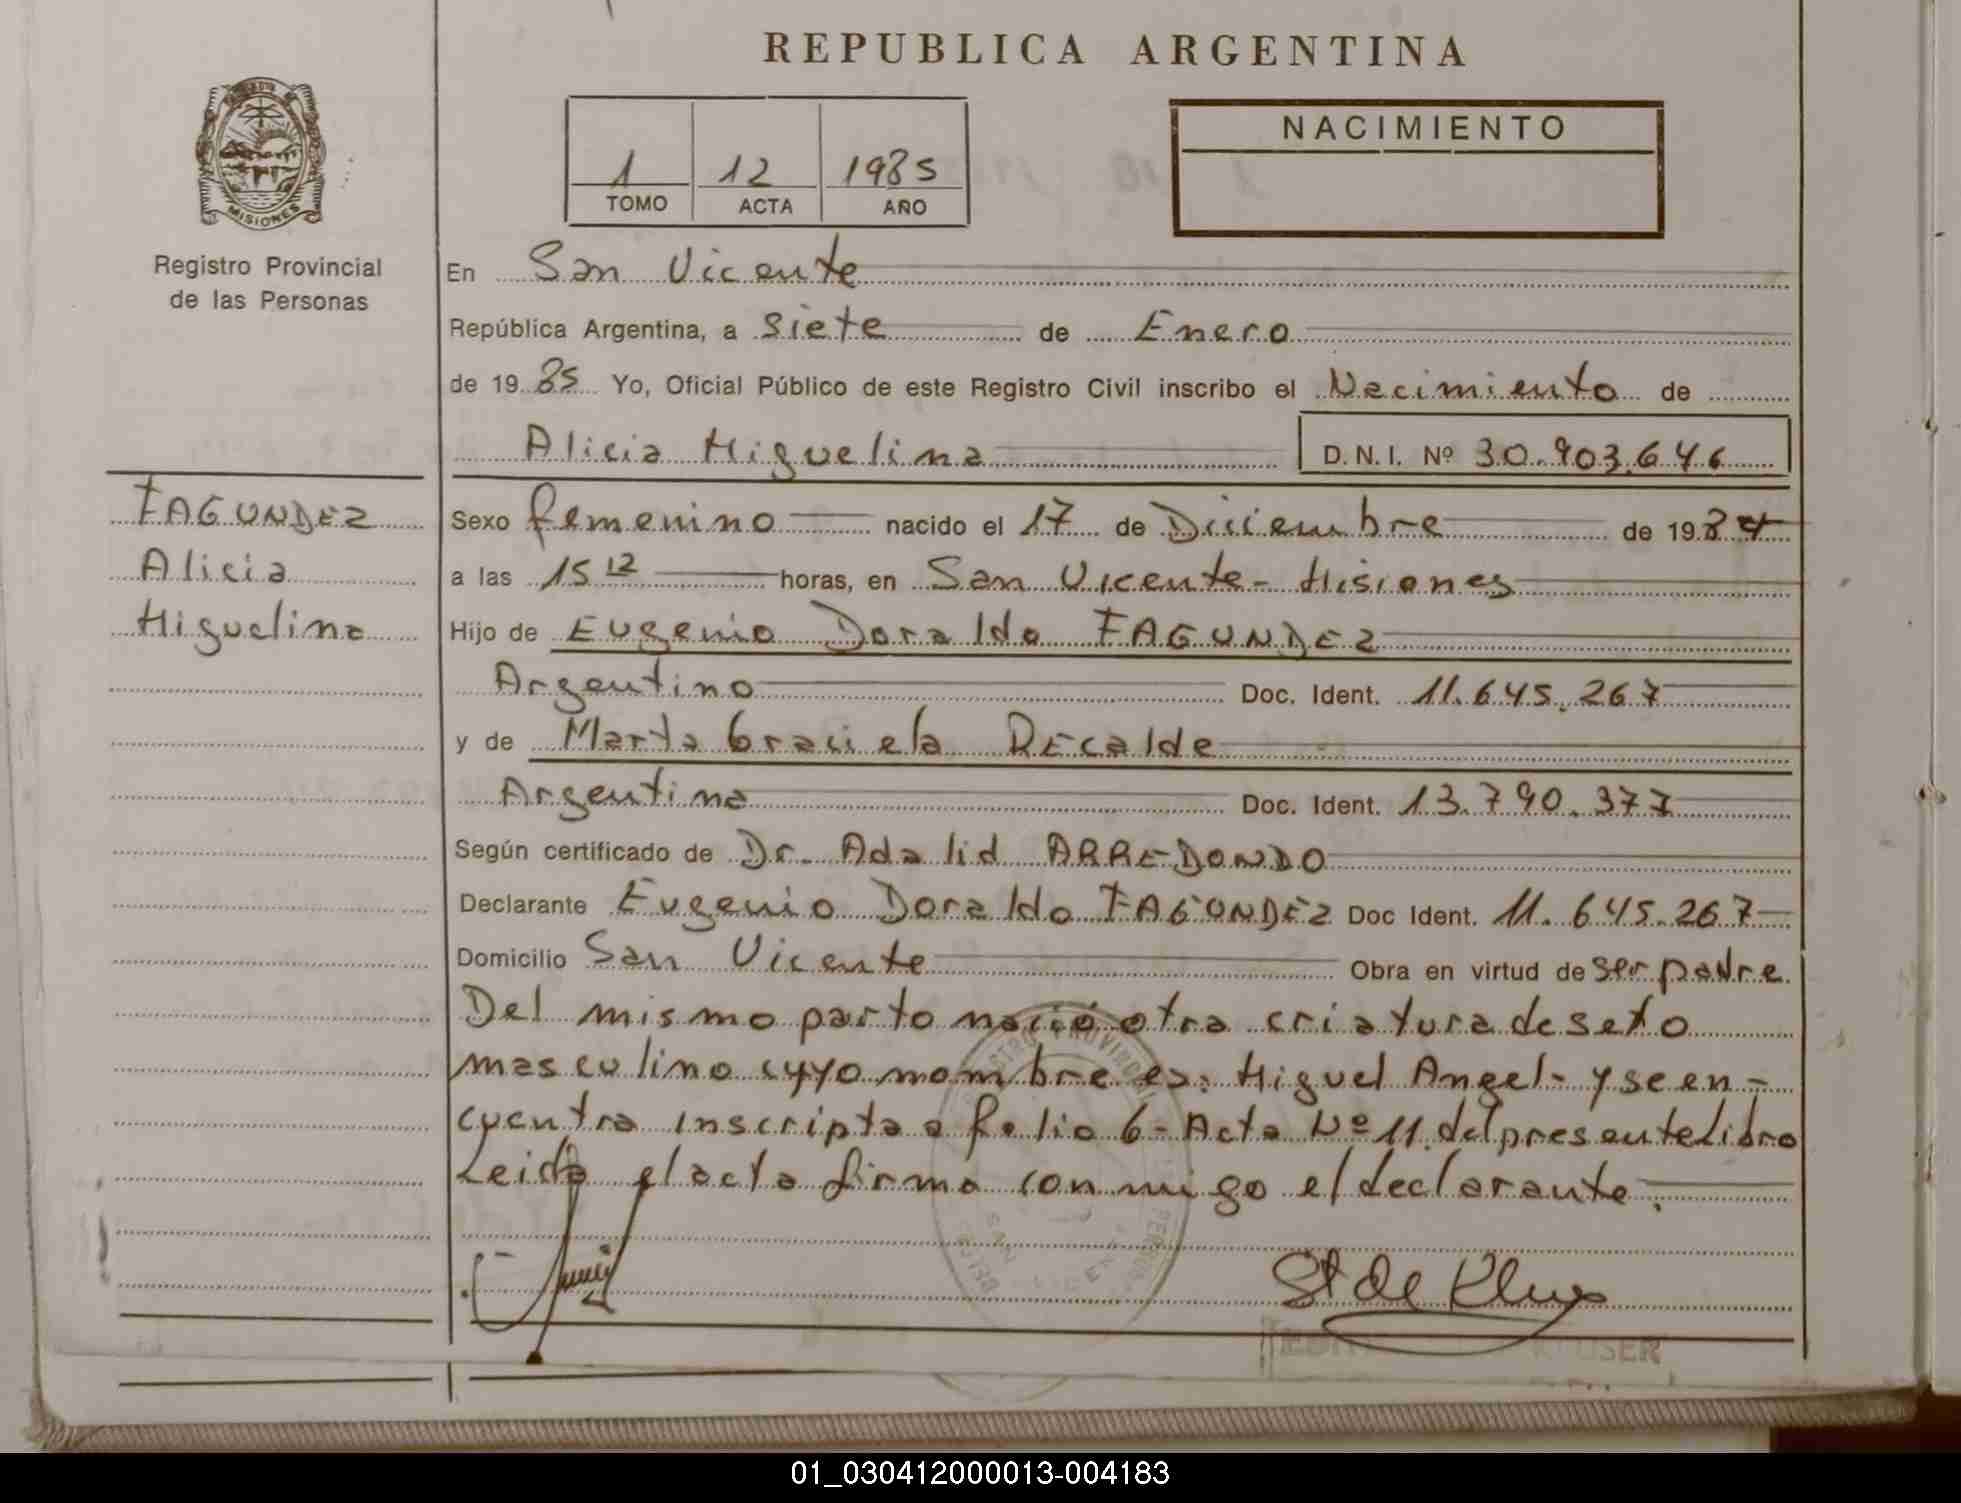 REPUBLICA ARGENTINA
1 12 1985
TOMO ACTA AÑO
NACIMIENTO
MISIONES
Registro Provincial
de las Personas
En San Vicente
República Argentina, a Siete de Enero
de 1985 Yo, Oficial Público de este Registro Civil inscribo el Nacimiento de
Alicia Miguelina D.N.I. Nº 30.903.646
FAGUNDEZ
Alicia
Miguelina
Sexo femenino nacido el 17 de Diciembre de 1984
a las 15 12 horas, en San Vicente - Misiones
Hijo de Eugenio Doraldo FAGUNDEZ
Argentino Doc. Ident. 11.645.267
y de Marta Graciela RECalde
Argentina Doc. Ident. 13.790.377
Según certificado de Dr. Adalid ARREDONDO
Declarante Eugenio Doraldo FAGUNDEZ Doc Ident. 11.645.267
Domicilio San Vicente Obra en virtud de ser padre.
Del mismo parto nació otra criatura de sexo
masculino cuyo nombre es: Miguel Angel - y se en-
cuentra inscripta a folio 6 - Acta Nº 11 del presente Libro
Leida el acta firma conmigo el declarante.
01_030412000013-004183